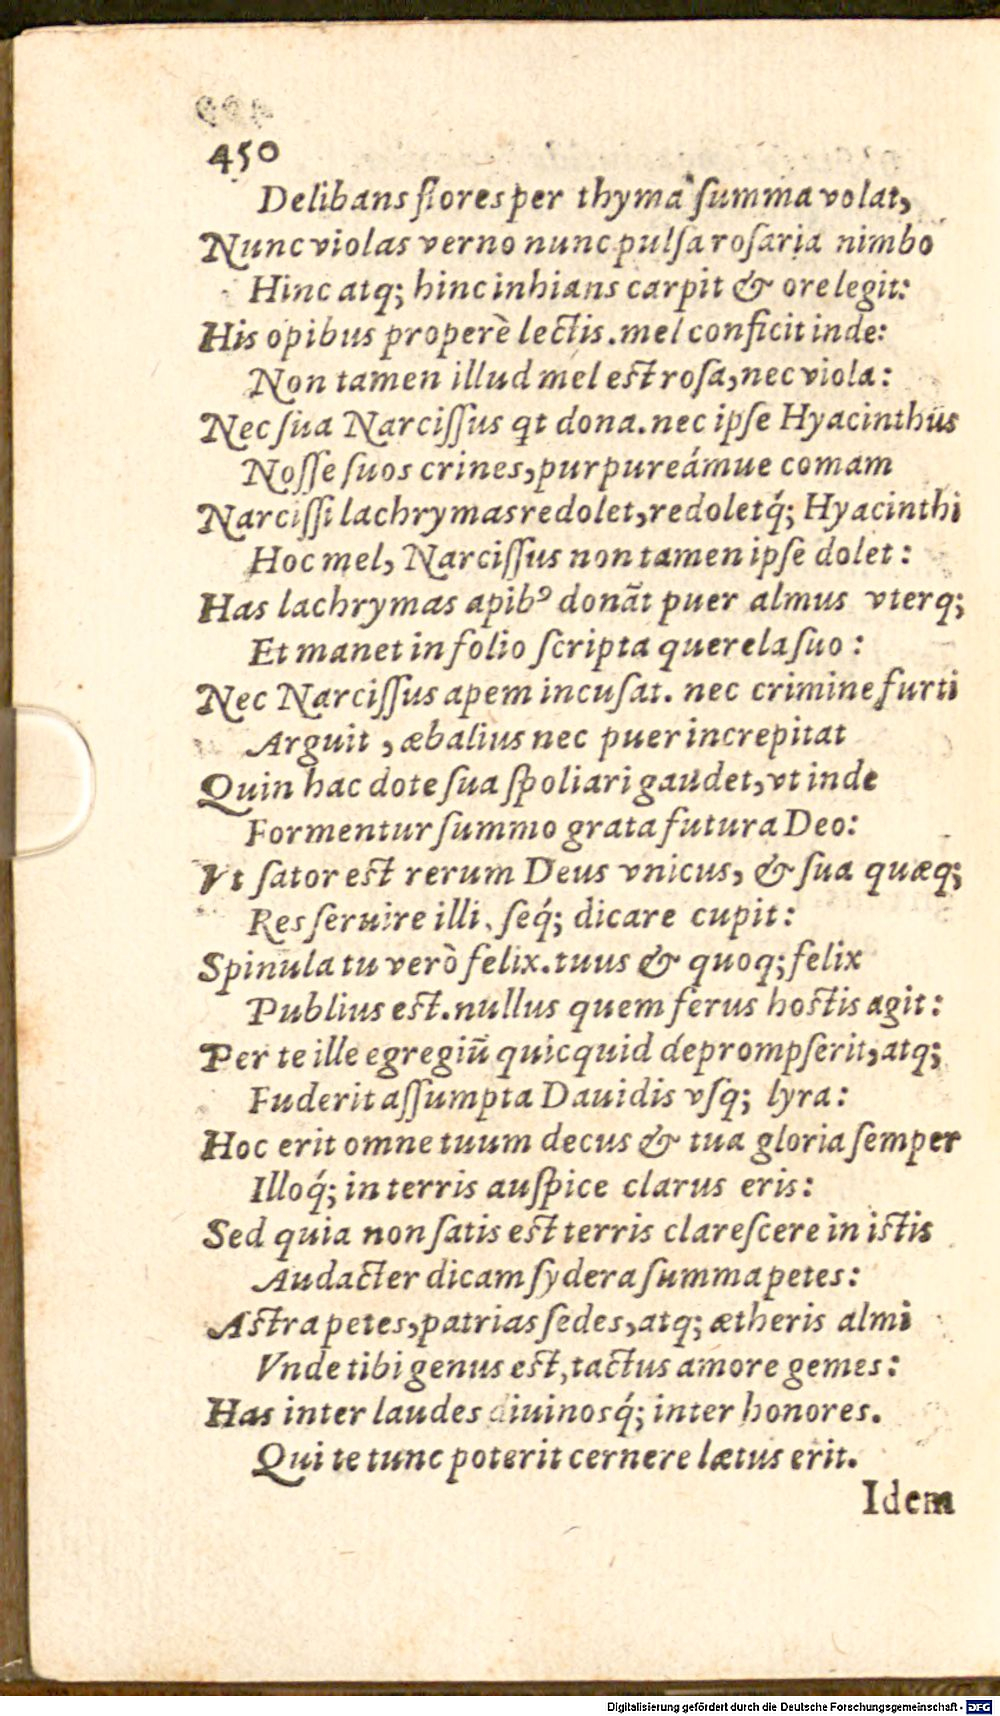 450
Delibans flores per thyma summa volat,
Nunc violas verno nunc pulsa rosaria nimbo
Hinc atq; hinc inhians carpit & ore legit:
His opibus properè lectis. mel conficit inde:
Non tamen illud mel est rosa, nec viola:
Nec sua Narcissus qt dona. nec ipse Hyacinthus
Nosse suos crines, purpureámue comam
Narcissi lachrymas redolet, redoletq́; Hyacinthi
Hoc mel, Narcissus non tamen ipse dolet:
Has lachrymas apibꝰ donãt puer almus vterq;
Et manet in folio scripta querela suo:
Nec Narcissus apem incusat. nec crimine furti
Arguit, æbalius nec puer increpitat
Quin hac dote sua spoliari gaudet, vt inde
Formentur summo grata futura Deo:
Vt sator est rerum Deus vnicus, & sua quæq;
Res seruire illi, seq́; dicare cupit:
Spinula tu verò felix. tuus & quoq; felix
Publius est. nullus quem ferus hostis agit:
Per te ille egregiũ quicquid deprompserit, atq;
Fuderit assumpta Dauidis vsq; lyra:
Hoc erit omne tuum decus & tua gloria semper
Illoq́; in terris auspice clarus eris:
Sed quia non satis est terris clarescere in istis
Audacter dicam sydera summa petes:
Astra petes, patrias sedes, atq; ætheris almi
Vnde tibi genus est, tactus amore gemes:
Has inter laudes diuinosq́; inter honores.
Qui te tunc poterit cernere lætus erit.
Idem
Digitalisierung gefördert durch die Deutsche Forschungsgemeinschaft - DFG